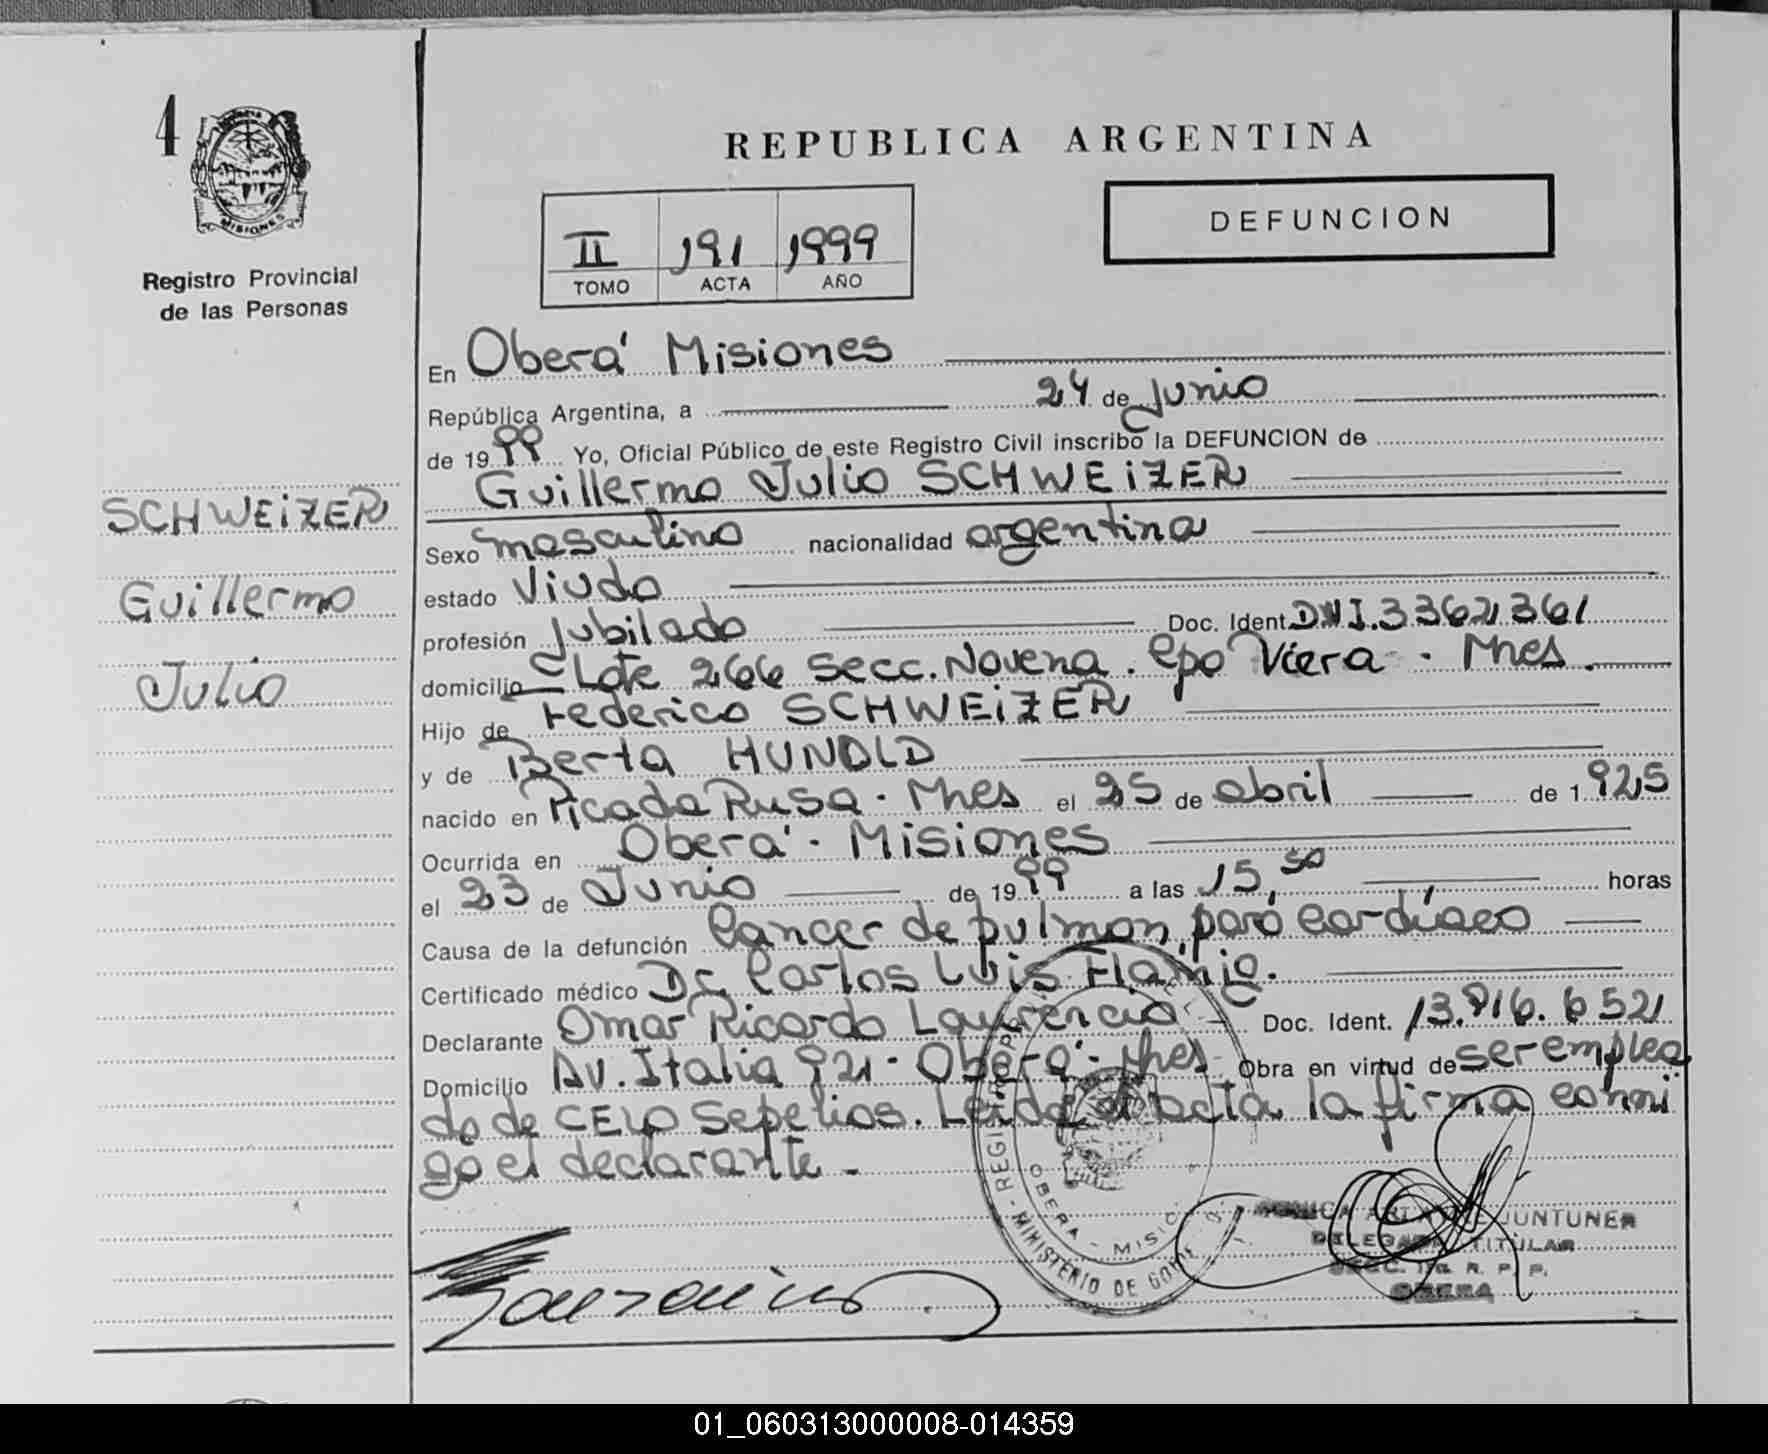 4
MISIONES
Registro Provincial
de las Personas
SCHWEIZER
Guillermo
Julio
REPUBLICA ARGENTINA
II 191 1999
TOMO ACTA AÑO
DEFUNCION
En Oberá Misiones
República Argentina, a 24 de Junio
de 1999 Yo, Oficial Público de este Registro Civil inscribo la DEFUNCION de
Guillermo Julio SCHWEIZER
Sexo masculino nacionalidad argentina
estado Viudo
profesión Jubilado Doc. Ident. DNI.3362361
domicilio Lote 266 Secc. Novena. Cpo Viera - Mnes.
Hijo de Federico SCHWEIZER
y de Berta HUNOLD
nacido en Picada Rusa - Mnes el 25 de abril de 1925
Ocurrida en Oberá - Misiones
el 23 de Junio de 1999 a las 15,50 horas
Causa de la defunción Cancer de pulmon, paro cardíaco
Certificado médico Dr. Carlos Luis
Declarante Omar Ricardo Laurencio Doc. Ident. 13.816.652
Domicilio Av. Italia 921 - Oberá - Mnes Obra en virtud de ser emplea
do de CELO Sepelios. Leida el acta la firma conmi
go el declarante.-
MINISTERIO DE
OBERA - MISIO
JUNTUNER
DELEGADA TITULAR
R. P. P.
OBERA
01_060313000008-014359